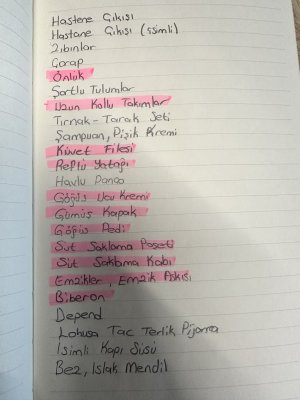 Hastene Çıkışı
Hastane Çıkışı (isimli)
Zıbınlar
Çorap
Önlük
Şortlu Tulumlar
Uzun Kollu Takımlar
Tırnak-Tarak Seti
Şampuan, Pişik Kremi
Küvet Filesi
Reflü Yatağı
Havlu Panço
Göğüs Ucu Kremi
Gümüş Kapak
Göğüs Pedi
Süt Saklama Poşeti
Süt Saklama Kabı
Emzikler, Emzik Askısı
Biberon
Depend
Lohusa Tac Terlik Pijama
İsimli Kapı Süsü
Bez, Islak Mendil